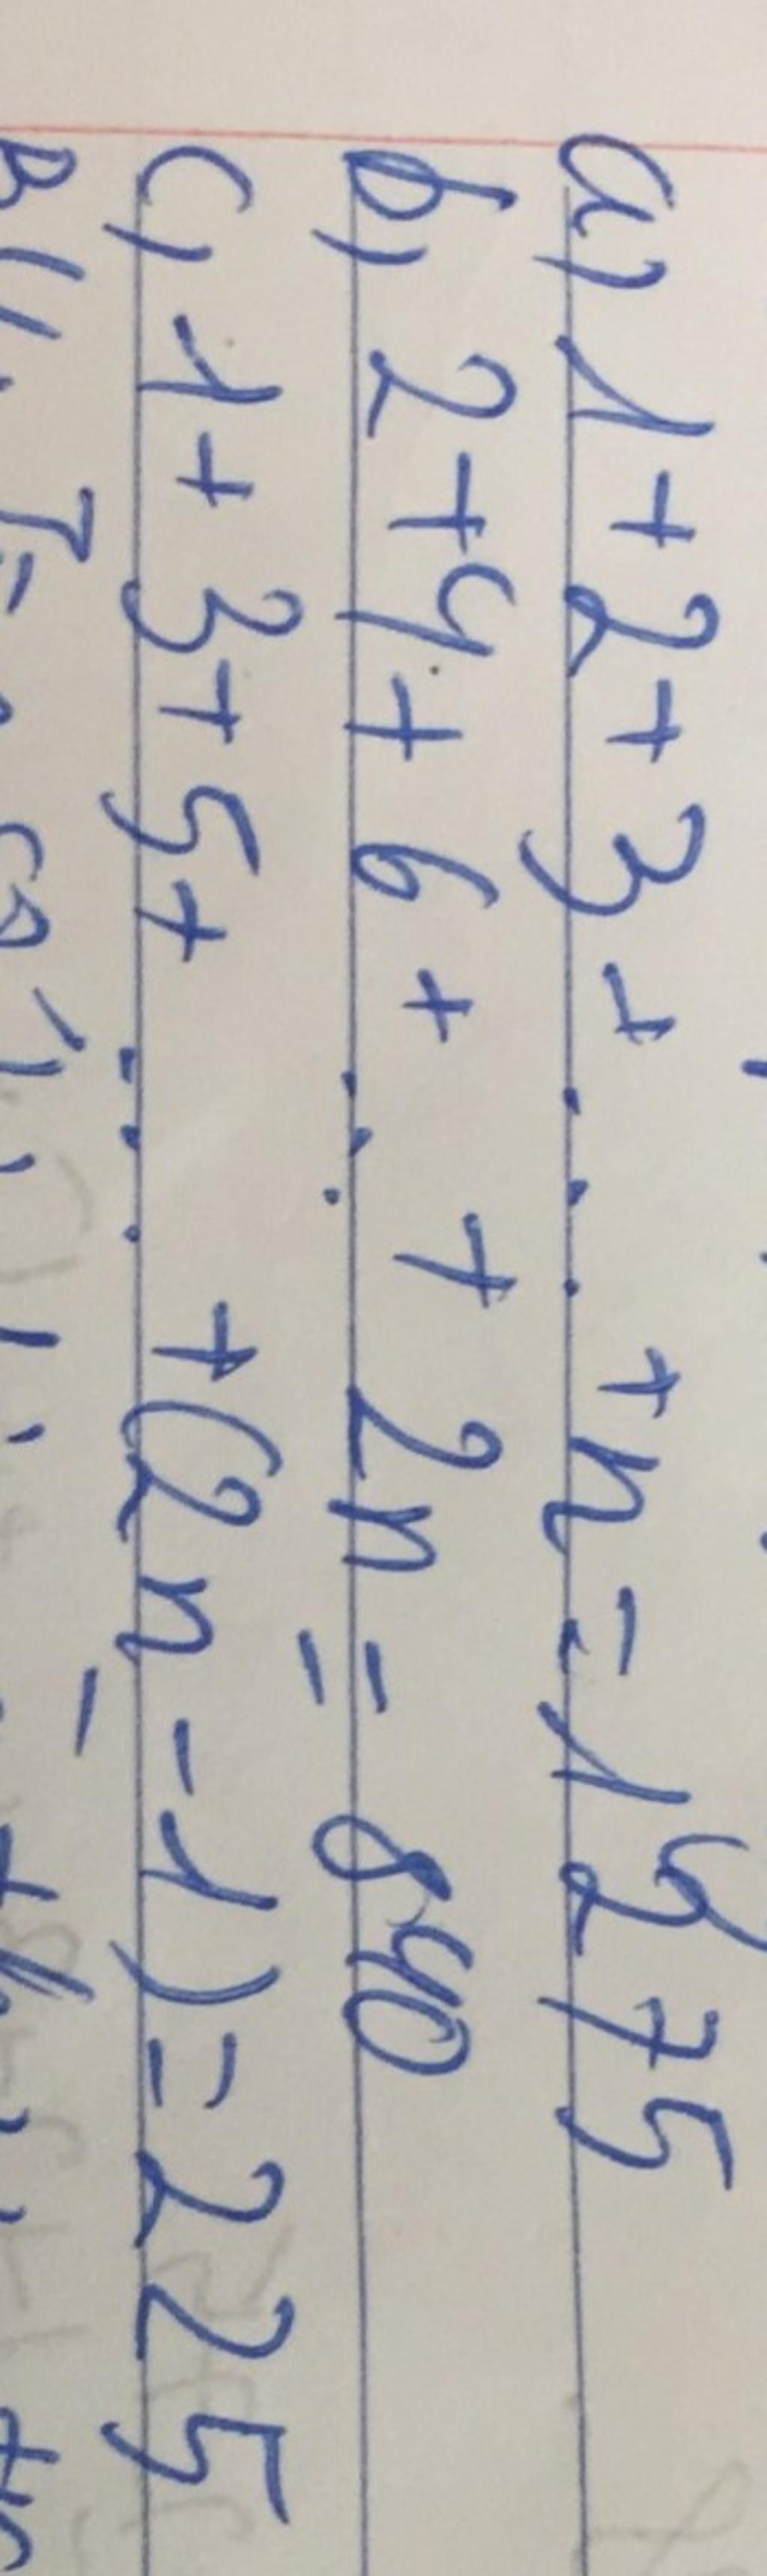 a) 1 + 2 + 3 + ... + n = 1275
b) 2 + 4 + 6 + ... + 2n = 840
c) 1 + 3 + 5 + ... + (2n - 1) = 225